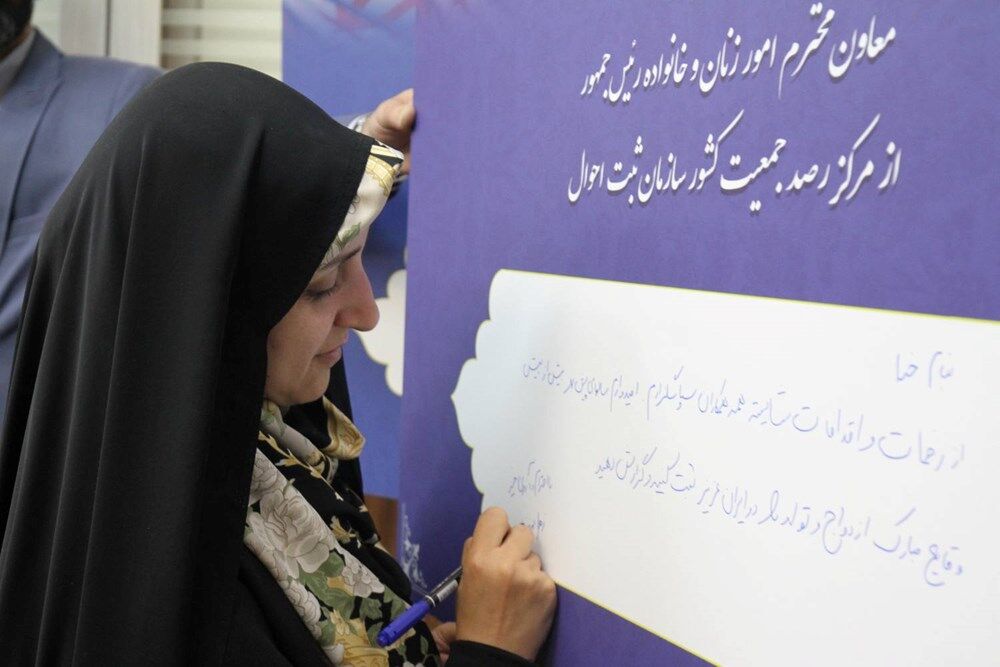 معاون محترم امور زنان و خانواده رئیس جمهور
از مرکز رصد جمعیت کشور سازمان ثبت احوال
بنام خدا
از زحمات و اقدامات شایسته همه همکاران سپاسگزارم. امیدوارم سالهای پیش رو بیش از پیش
وقایع مبارک ازدواج و تولد را در ایران عزیز ثبت کنید و گزارش دهید